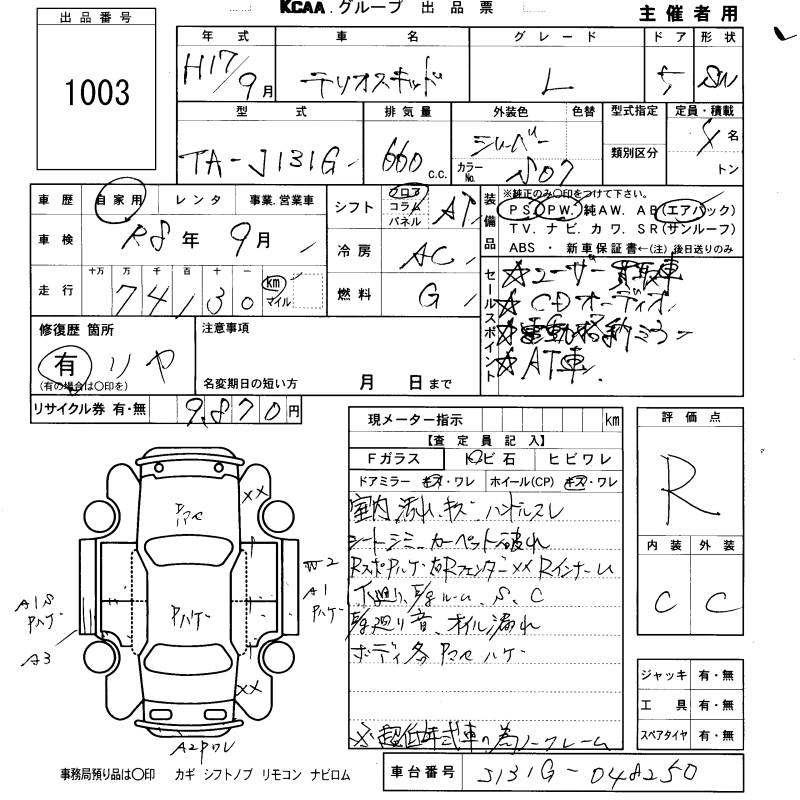 KCAA.グループ 出品票
主催者用
出品番号
1003
年式 車名 グレード ドア 形状
H17/9月 テリオスキッド L 5 SW
型式 排気量 外装色 色替 型式指定 定員・積載
TA-J131G 660 c.c. シルバー 4名
カラーNo. S07 類別区分 トン
車歴 自家用 レンタ 事業.営業車
シフト フロア コラム パネル AT
装備品 ※純正のみ〇印をつけて下さい。
PS. PW. 純AW. AB(エアバック)
TV. ナビ. カワ. SR(サンルーフ)
ABS ・ 新車保証書←(注)後日送りのみ
車検 R8年9月
冷房 AC
走行 十万 万 千 百 十 一
74,130 km マイル
燃料 G
セールスポイント
☆ユーザー買取車
☆CDオーディオ
☆電動格納ミラー
☆AT車
修復歴 箇所 注意事項
有 リヤ
(有の場合は〇印を) 名変期日の短い方 月 日まで
リサイクル券 有・無 9,870円
現メーター指示 km
【査定員記入】
Fガラス トビ石 ヒビワレ
ドアミラー キズ・ワレ ホイール(CP) キズ・ワレ
室内汚れ、キズ ハンドルスレ
シートシミ カーペット破れ
下廻り、E/gルーム、S、C
E/g廻り音、オイル漏れ
ボディ各アマセハゲ
※超低年式車の為ノークレーム
評価点
R
内装 外装
C C
ジャッキ 有・無
工具 有・無
スペアタイヤ 有・無
××
W-2
A1
Pハゲ
A1S
Pハゲ
A3
Pハゲ
××
事務局預り品は〇印 カギ シフトノブ リモコン ナビロム
車台番号 J131G-048250